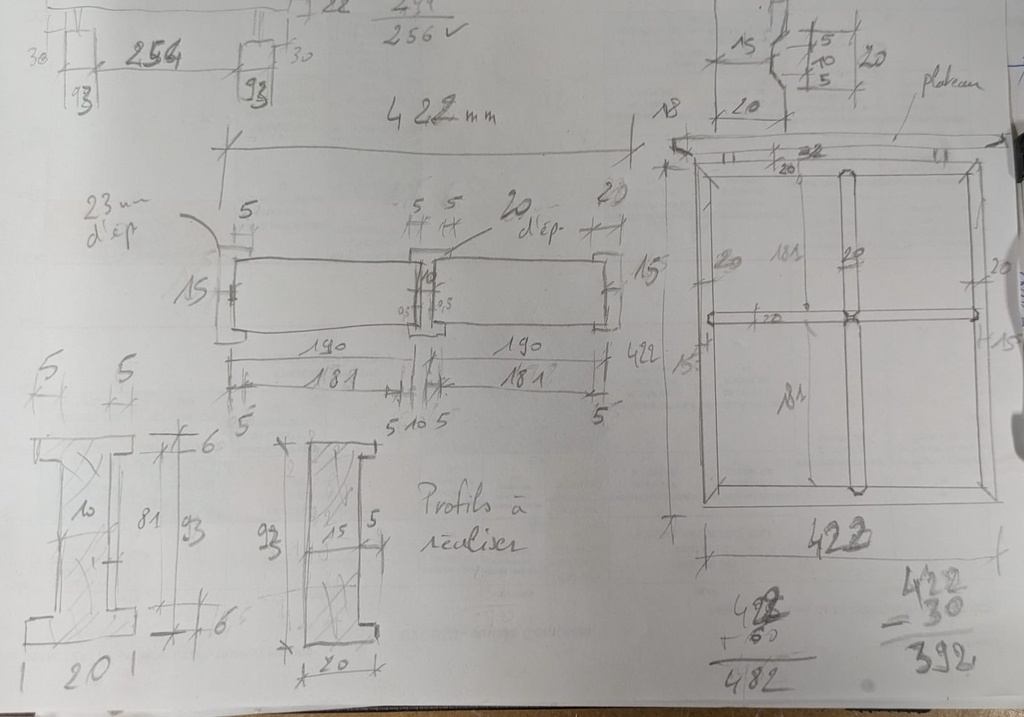 22
256 ✓
30
256
30
93
93
15
5
10
5
20
20
plateau
422 mm
18
32
20
23 mm
d'ép.
5
5 5
20
d'ép.
20
15
10
15
181
20
20
20
20
190
190
422
181
181
5
5 10 5
5
15
15
181
5
5
6
10
81
93
6
20
93
15
5
20
Profils à
réaliser
422
422
+ 60
482
422
- 30
392